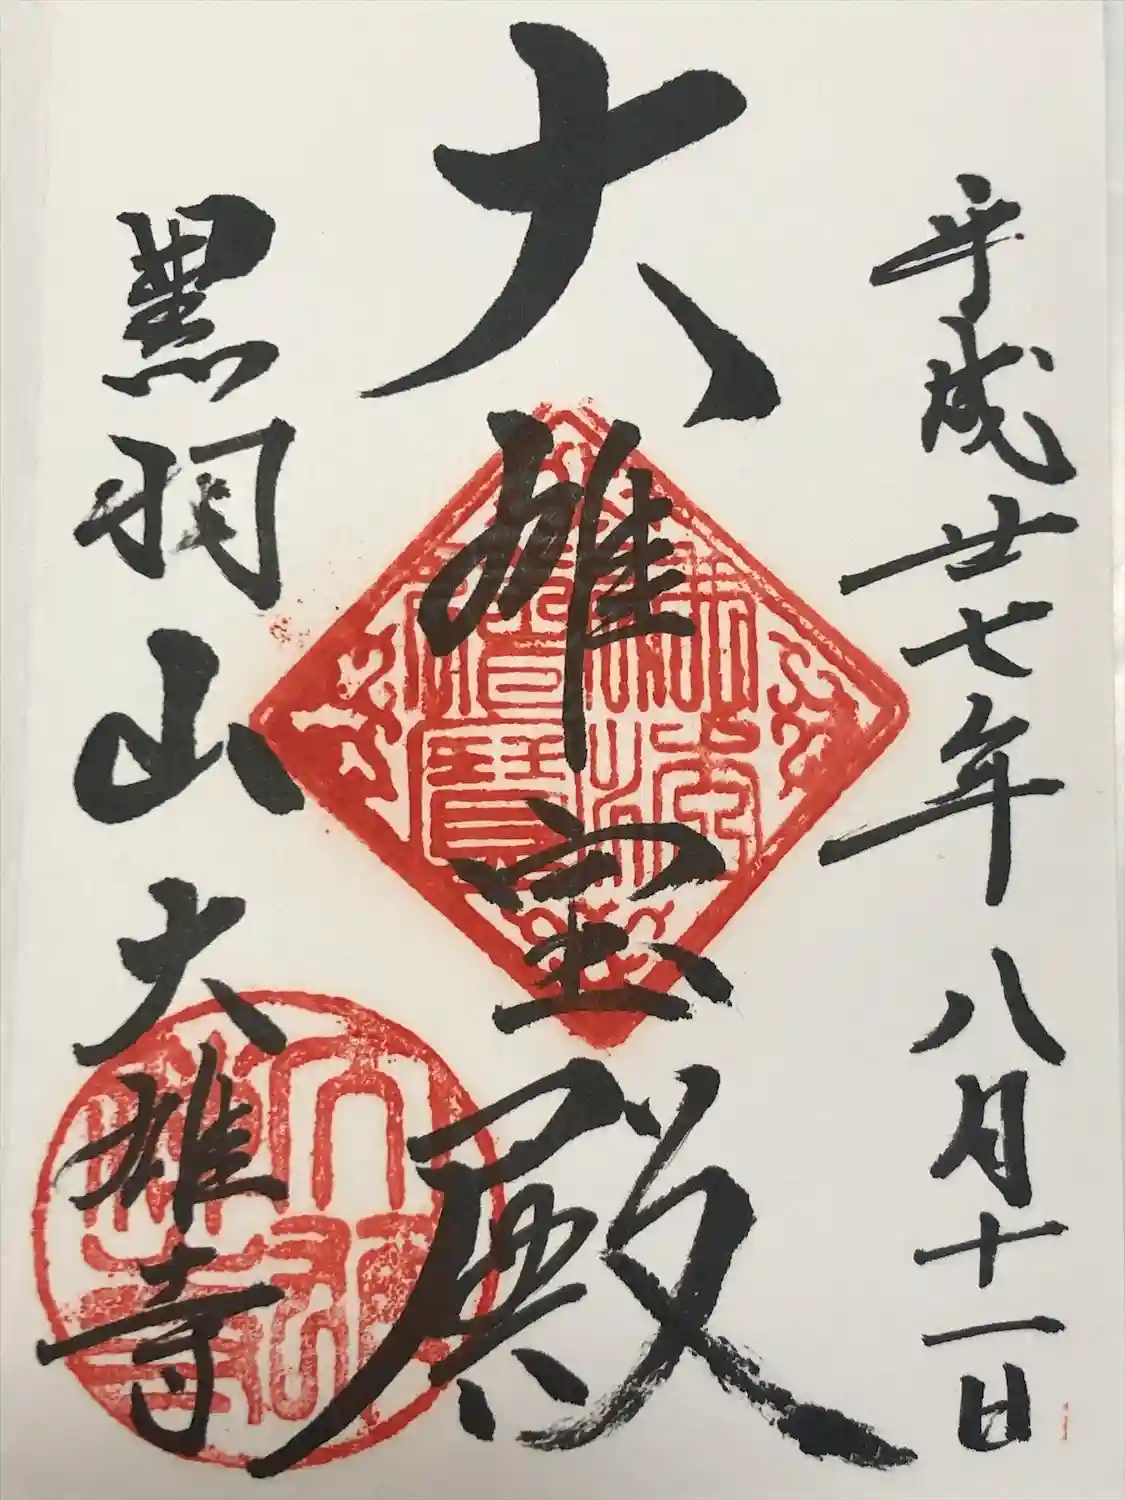 平成廿七年八月十一日
大雄宝殿
黒羽山大雄寺